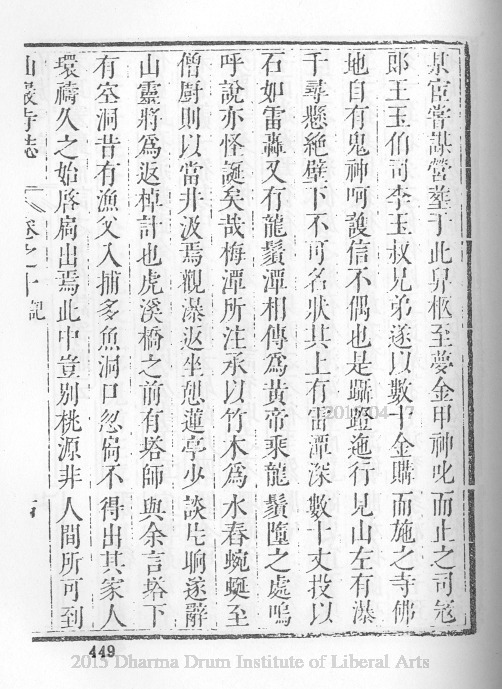 某宦嘗謀營塟于此舁柩至夢金甲神叱而止之司冦
郎王玉伯司李玉叔兄弟遂以數十金購而施之寺佛
地自有鬼神呵護信不偶也是躡蹬迤行見山左有瀑
千尋懸絶壁下不可名狀其上有雷潭深數十丈投以
石如雷轟又有龍鬚潭相傳爲黃帝乘龍鬚墮之處嗚
呼說亦怪誕矣哉梅潭所注承以竹木爲水舂蜿蜒至
僧厨則以當井汲焉觀瀑返坐憩蓮亭少談片晌遂辭
山靈將爲返棹計也虎溪橋之前有塔師與余言塔下
有空洞昔有漁父入捕多魚洞口忽扃不得出其家人
環禱久之始啓扃出焉此中豈别桃源非人間所可到
山嚴寺誌 卷之十 記
449
2015 Dharma Drum Institute of Liberal Arts